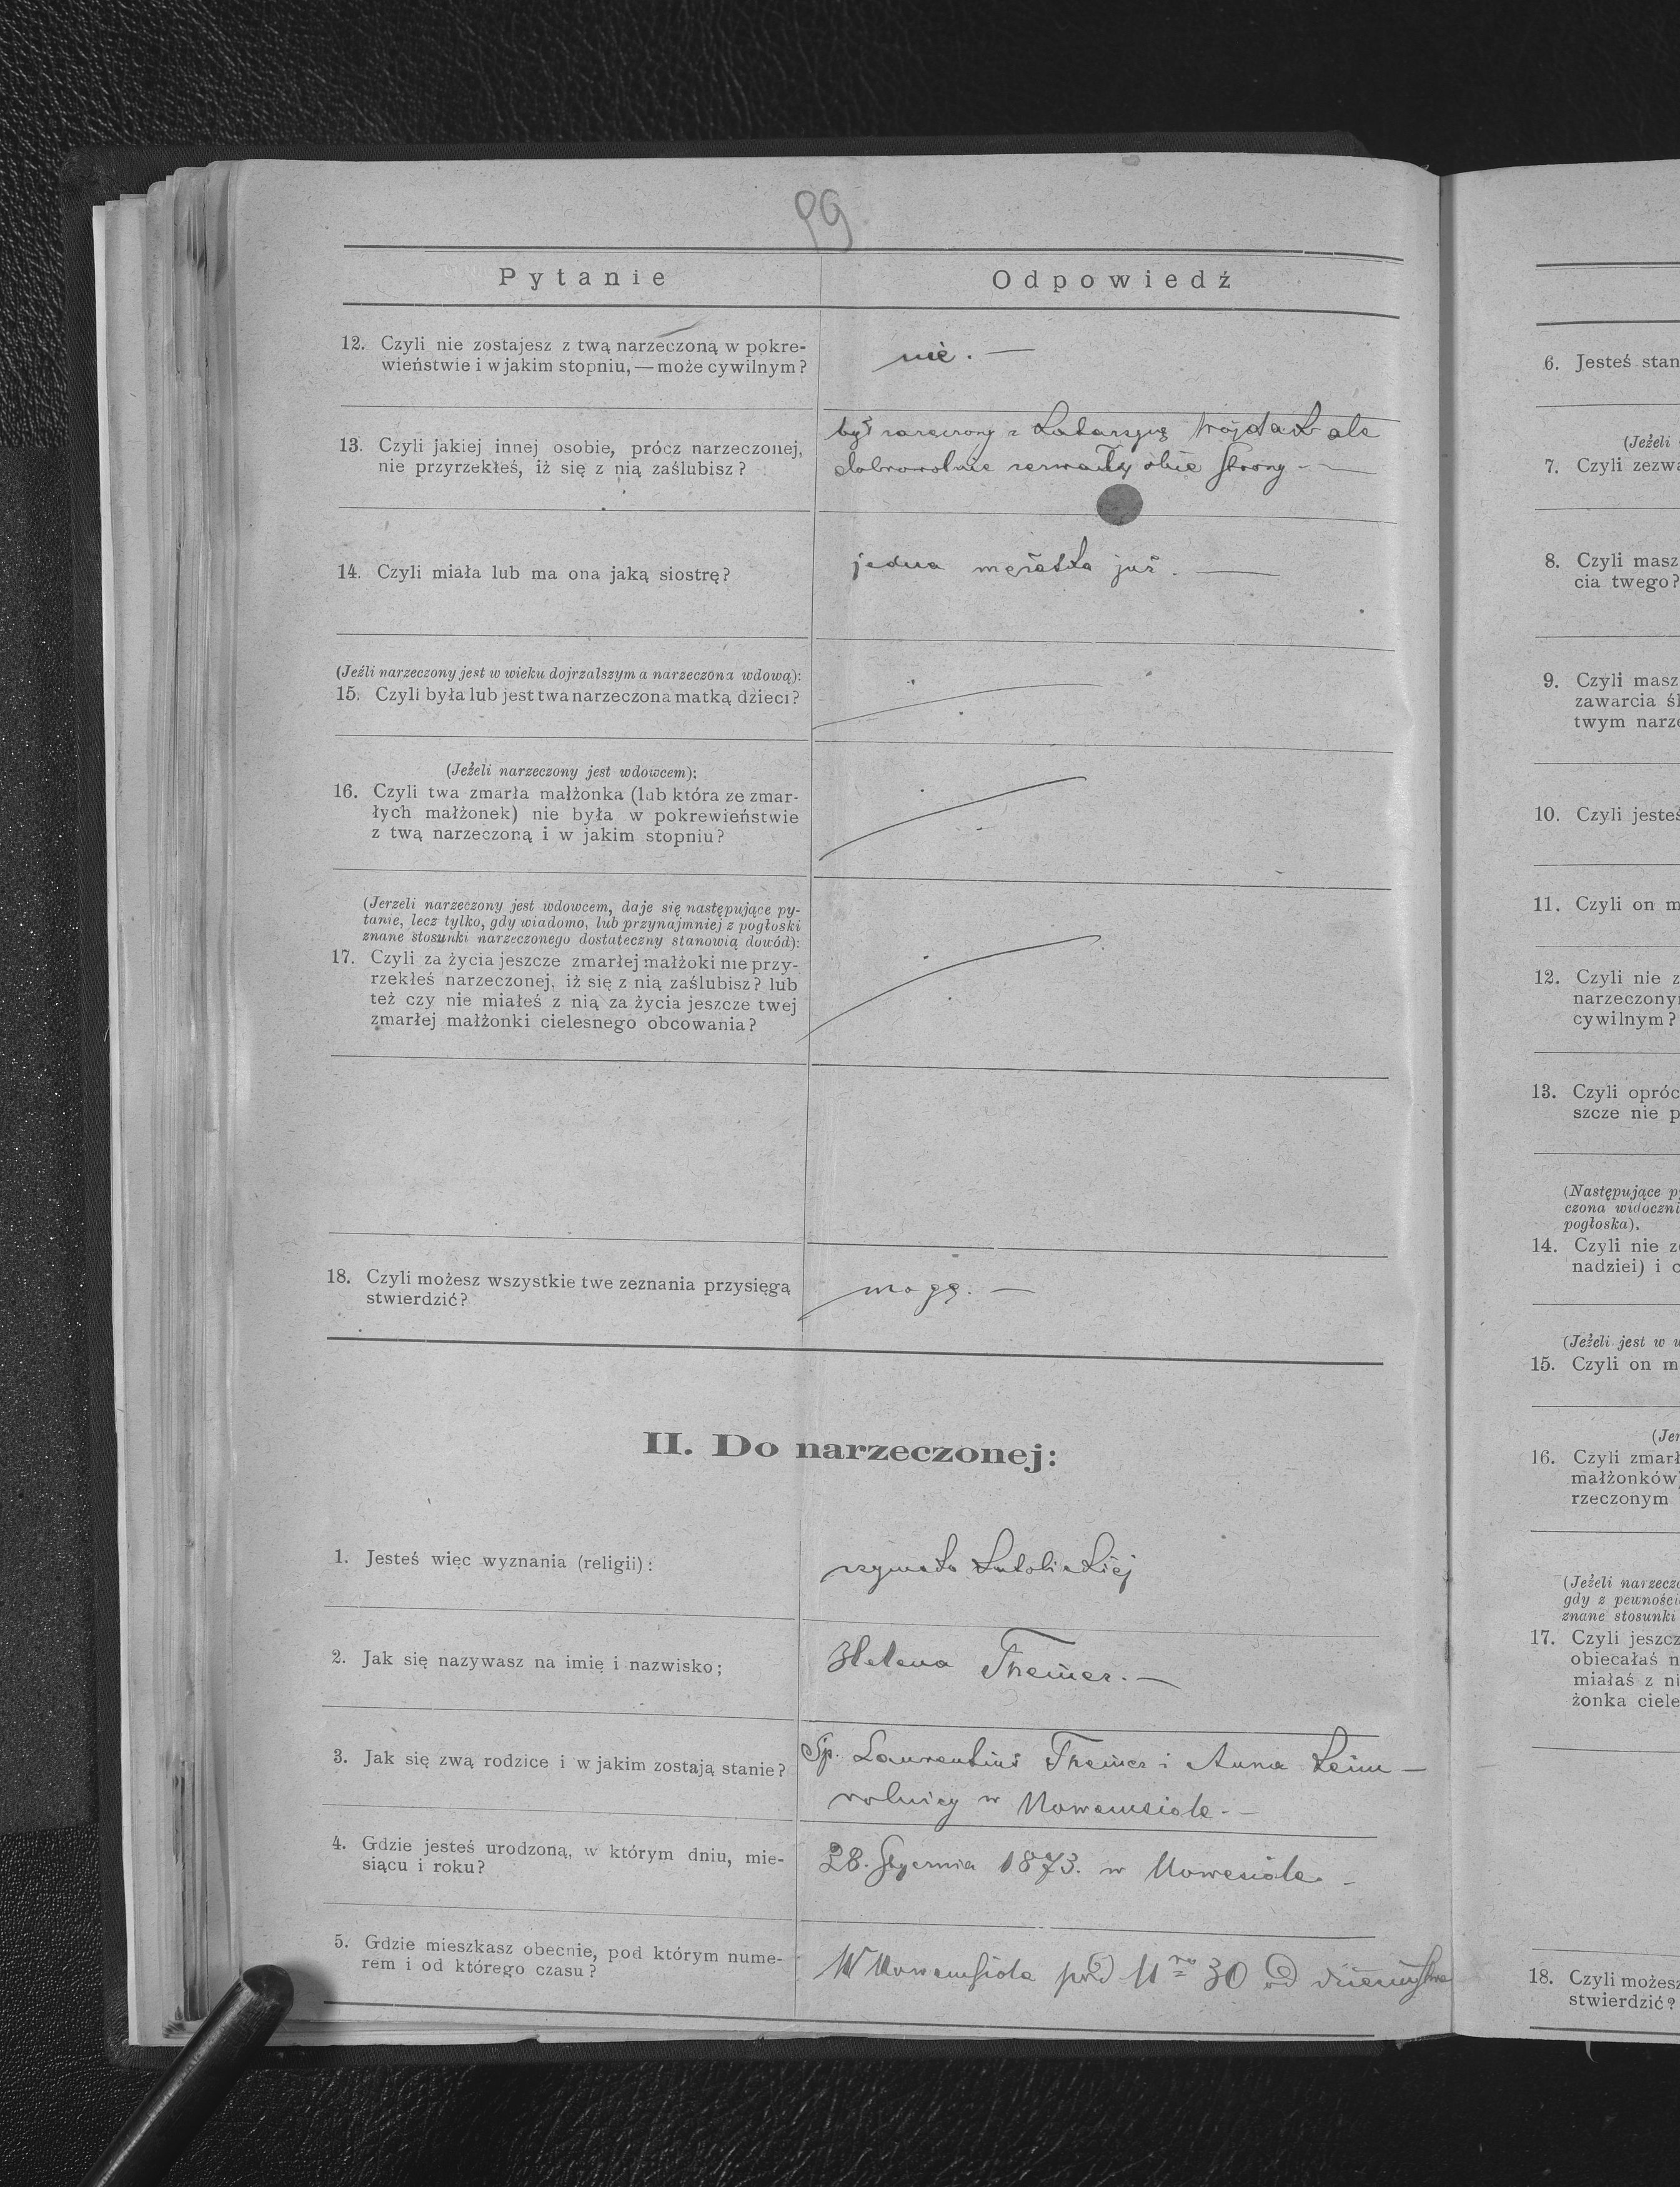 99
Pytanie
Odpowiedź
12. Czyli nie zostajesz z twą narzeczoną w pokre-
wieństwie i w jakim stopniu, — może cywilnym?
nie. —
13. Czyli jakiej innej osobie, prócz narzeczonej,
nie przyrzekłeś, iż się z nią zaślubisz?
był zaręczony z Katarzyną Wojdak ale
dobrowolnie zerwały obie strony. —
14. Czyli miała lub ma ona jaką siostrę?
jedna mężatka już. —
(Jeźli narzeczony jest w wieku dojrzalszym a narzeczona wdową):
15. Czyli była lub jest twa narzeczona matką dzieci?
(Jeżeli narzeczony jest wdowcem):
16. Czyli twa zmarła małżonka (lub która ze zmar-
łych małżonek) nie była w pokrewieństwie
z twą narzeczoną i w jakim stopniu?
(Jerzeli narzeczony jest wdowcem, daje się następujące py-
tanie, lecz tylko, gdy wiadomo, lub przynajmniej z pogłoski
znane stosunki narzeczonego dostateczny stanowią dowód):
17. Czyli za życia jeszcze zmarłej małżoki nie przy-
rzekłeś narzeczonej, iż się z nią zaślubisz? lub
też czy nie miałeś z nią za życia jeszcze twej
zmarłej małżonki cielesnego obcowania?
18. Czyli możesz wszystkie twe zeznania przysięgą
stwierdzić?
mogę. —
II. Do narzeczonej:
1. Jesteś więc wyznania (religii):
rzymsko katolickiej
2. Jak się nazywasz na imię i nazwisko;
Helena Theiner. —
3. Jak się zwą rodzice i w jakim zostają stanie?
Śp. Laurentius Theiner i Anna Keim —
rolnicy w Nowemsiole. —
4. Gdzie jesteś urodzoną, w którym dniu, mie-
siącu i roku?
28. Stycznia 1873. w Nowesiole. —
5. Gdzie mieszkasz obecnie, pod którym nume-
rem i od którego czasu?
W Nowemsiole pod Nro 30 od
6. Jesteś stan
(Jeżeli
7. Czyli zezwa
8. Czyli masz
cia twego?
9. Czyli masz
zawarcia śl
twym narze
10. Czyli jesteś
11. Czyli on m
12. Czyli nie z
narzeczony
cywilnym?
13. Czyli opróc
szcze nie p
(Następujące p
czona widoczni
pogłoska).
14. Czyli nie z
nadziei) i c
(Jeżeli jest w
15. Czyli on m
(Jer
16. Czyli zmarł
małżonków)
rzeczonym
(Jeżeli narzecz
gdy z pewności
znane stosunki
17. Czyli jeszcz
obiecałaś n
miałaś z ni
żonka ciele
18. Czyli możesz
stwierdzić?